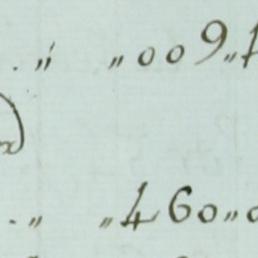 . „ „ 009 „
. „ „ 460 „